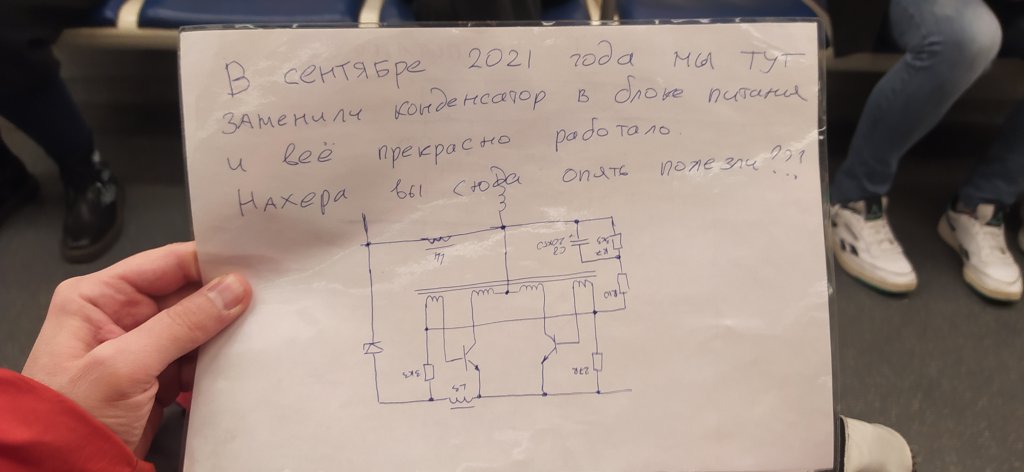 В сентябре 2021 года мы тут
заменили конденсатор в блоке питания
и всё прекрасно работало.
Нахера вы сюда опять полезли???
L4
C8
20x50
R7
R10
3K3
27R
L3